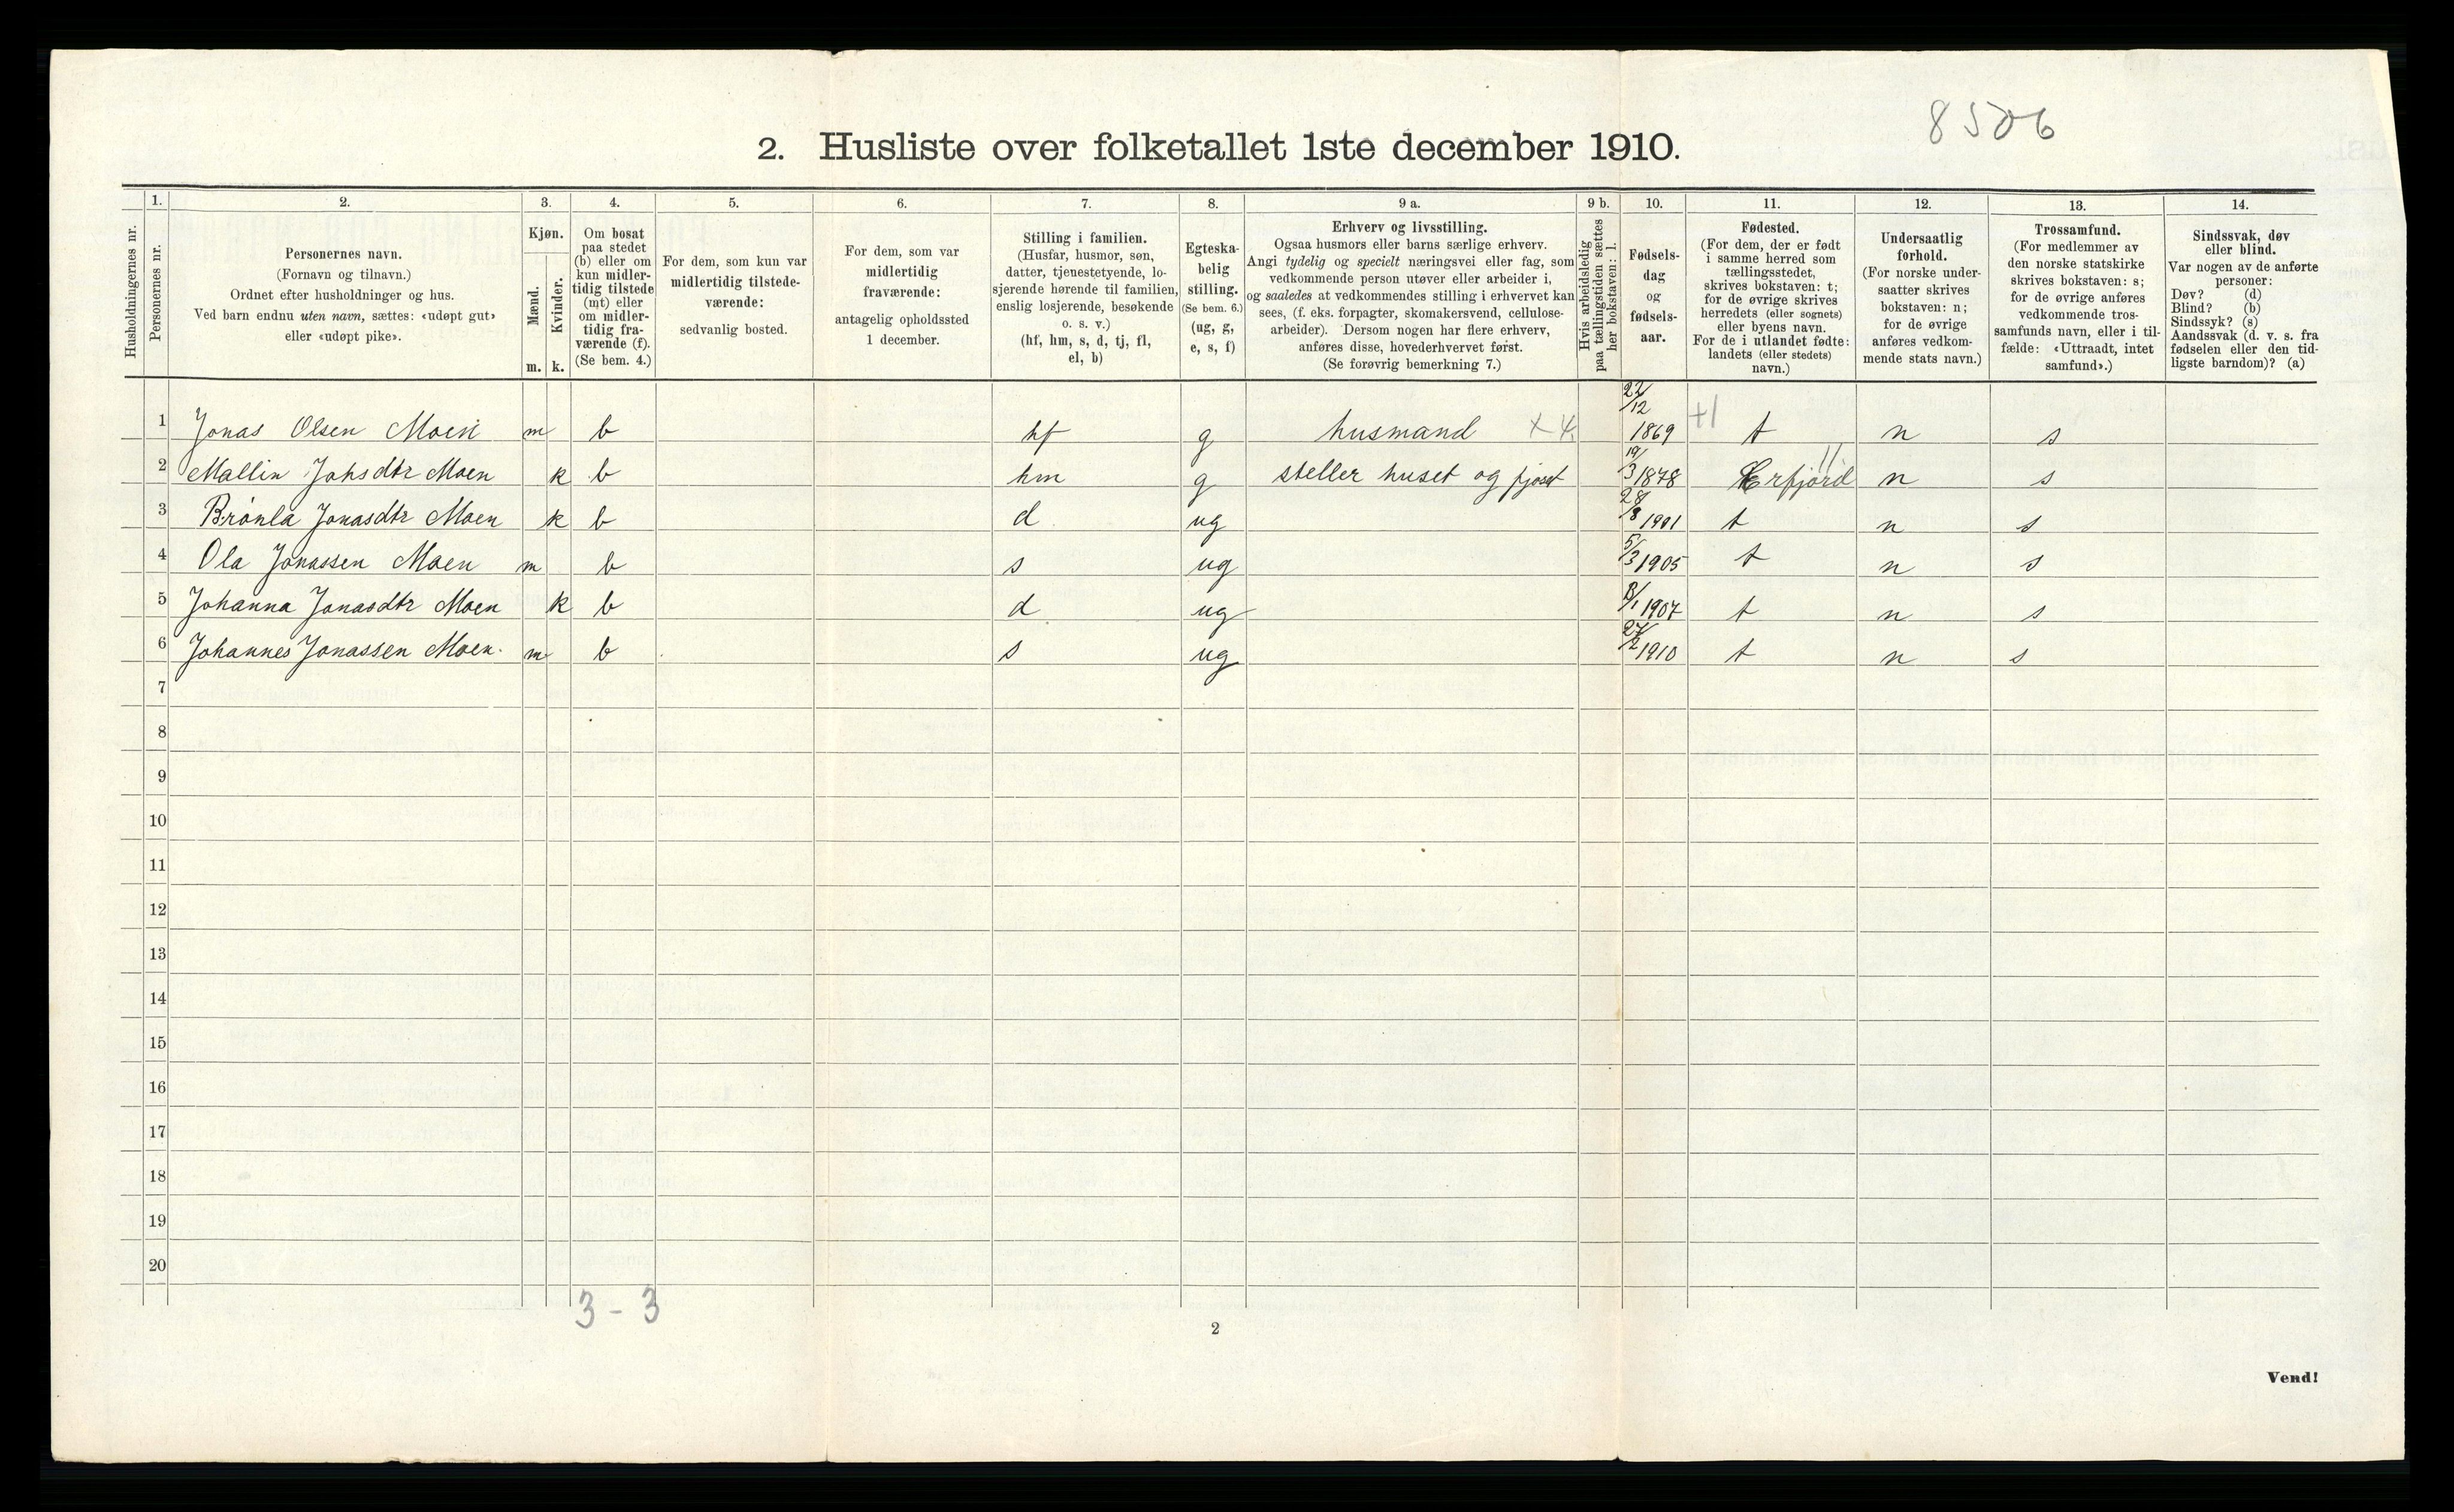 8506
2. Husliste over folketallet 1ste december 1910.
Husholdningernes nr.
1. Personernes nr.
2. Personernes navn.
(Fornavn og tilnavn.)
Ordnet efter husholdninger og hus.
Ved barn endnu uten navn, sættes: «udøpt gut»
eller «udøpt pike».
3. Kjøn.
Mænd. Kvinder.
m. k.
4. Om bosat
paa stedet
(b) eller om
kun midler-
tidig tilstede
(mt) eller
om midler-
tidig fra-
værende (f).
(Se bem. 4.)
5. For dem, som kun var
midlertidig tilstede-
værende:
sedvanlig bosted.
6. For dem, som var
midlertidig
fraværende:
antagelig opholdssted
1 december.
7. Stilling i familien.
(Husfar, husmor, søn,
datter, tjenestetyende, lo-
sjerende hørende til familien,
enslig losjerende, besøkende
o. s. v.)
(hf, hm, s, d, tj, fl,
el, b)
8. Egteska-
belig
stilling.
(Se bem. 6.)
(ug, g,
e, s, f)
9 a. Erhverv og livsstilling.
Ogsaa husmors eller barns særlige erhverv.
Angi tydelig og specielt næringsvei eller fag, som
vedkommende person utøver eller arbeider i,
og saaledes at vedkommendes stilling i erhvervet kan
sees, (f. eks. forpagter, skomakersvend, cellulose-
arbeider). Dersom nogen har flere erhverv,
anføres disse, hovederhvervet først.
(Se forøvrig bemerkning 7.)
9 b. Hvis arbeidsledig
paa tællingstiden sættes
her bokstaven: l.
10. Fødsels-
dag
og
fødsels-
aar.
11. Fødested.
(For dem, der er født
i samme herred som
tællingsstedet,
skrives bokstaven: t;
for de øvrige skrives
herredets (eller sognets)
eller byens navn.
For de i utlandet fødte:
landets (eller stedets)
navn.)
12. Undersaatlig
forhold.
(For norske under-
saatter skrives
bokstaven: n;
for de øvrige
anføres vedkom-
mende stats navn.)
13. Trossamfund.
(For medlemmer av
den norske statskirke
skrives bokstaven: s;
for de øvrige anføres
vedkommende tros-
samfunds navn, eller i til-
fælde: «Uttraadt, intet
samfund».)
14. Sindssvak, døv
eller blind.
Var nogen av de anførte
personer:
Døv? (d)
Blind? (b)
Sindssyk? (s)
Aandssvak (d. v. s. fra
fødselen eller den tid-
ligste barndom)? (a)
1 Jonas Olsen Moen m b hf g husmand 22/12 1869 +1 t n s
2 Mallin Johsdtr Moen k b hm g steller huset og fjøset 19/3 1878 Erfjord n s
3 Brønla Jonasdtr Moen k b d ug 28/8 1901 t n s
4 Ola Jonassen Moen m b s ug 5/3 1905 t n s
5 Johanna Jonasdtr Moen k b d ug 8/1 1907 t n s
6 Johannes Jonassen Moen. m b s ug 27/2 1910 t n s
7
8
9
10
11
12
13
14
15
16
17
18
19
20
3 - 3
2
Vend!